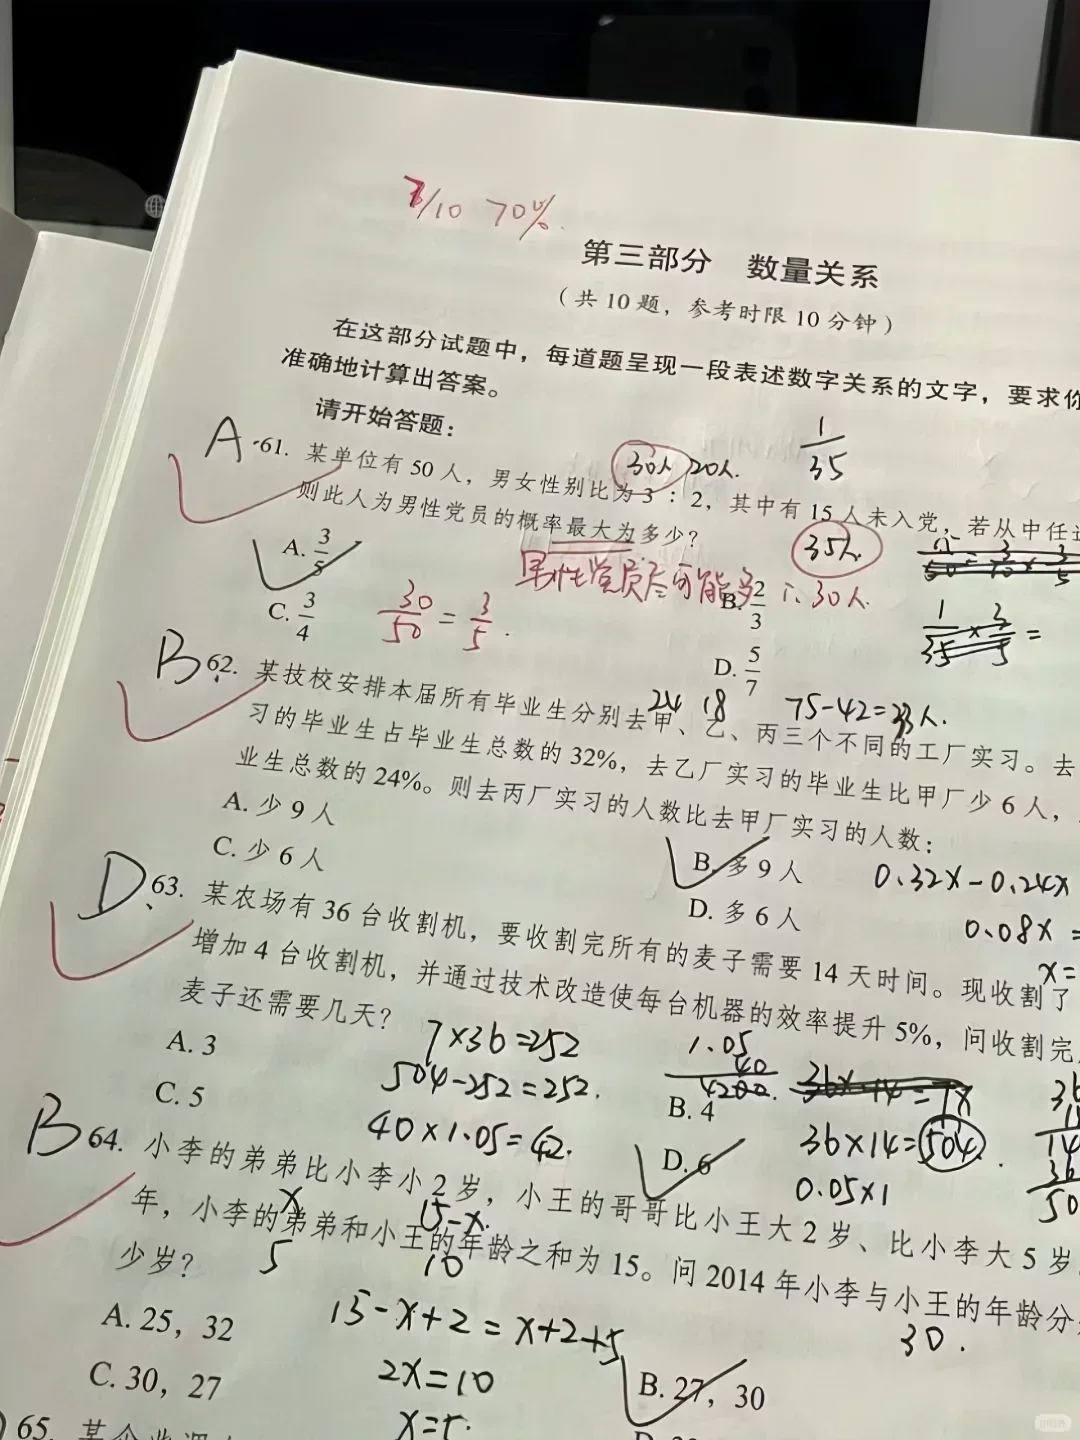 7/10 70%.
第三部分 数量关系
（共 10 题，参考时限 10 分钟）
在这部分试题中，每道题呈现一段表述数字关系的文字，要求你
准确地计算出答案。
请开始答题：
1/35
30人 20人.
A 61. 某单位有 50 人，男女性别比为 3：2，其中有 15 人未入党，若从中任
则此人为男性党员的概率最大为多少？
35人
A. 3/5
男性党员尽可能多 ∴ 30人.
B. 2/3
C. 3/4
30/50 = 3/5.
1/35 × 3/5 =
D. 5/7
B 62. 某技校安排本届所有毕业生分别去甲、乙、丙三个不同的工厂实习。去
24 18 75-42=33人.
习的毕业生占毕业生总数的 32%，去乙厂实习的毕业生比甲厂少 6 人，
业生总数的 24%。则去丙厂实习的人数比去甲厂实习的人数：
A. 少 9 人
B. 多 9 人
C. 少 6 人
D. 多 6 人
0.32x-0.24x
0.08x =
x=
D 63. 某农场有 36 台收割机，要收割完所有的麦子需要 14 天时间。现收割了
增加 4 台收割机，并通过技术改造使每台机器的效率提升 5%，问收割完
麦子还需要几天？
A. 3
7×36=252
1.05
40
4200.
36×14=7x
504-252=252.
B. 4
C. 5
40×1.05=42.
D. 6
36×14=504.
0.05×1
B 64. 小李的弟弟比小李小 2 岁，小王的哥哥比小王大 2 岁、比小李大 5 岁
x 15-x.
年，小李的弟弟和小王的年龄之和为 15。问 2014 年小李与小王的年龄分
5 10
少岁？
30.
A. 25，32
15-x+2=x+2+5
B. 27，30
C. 30，27
2x=10
x=5.
65.